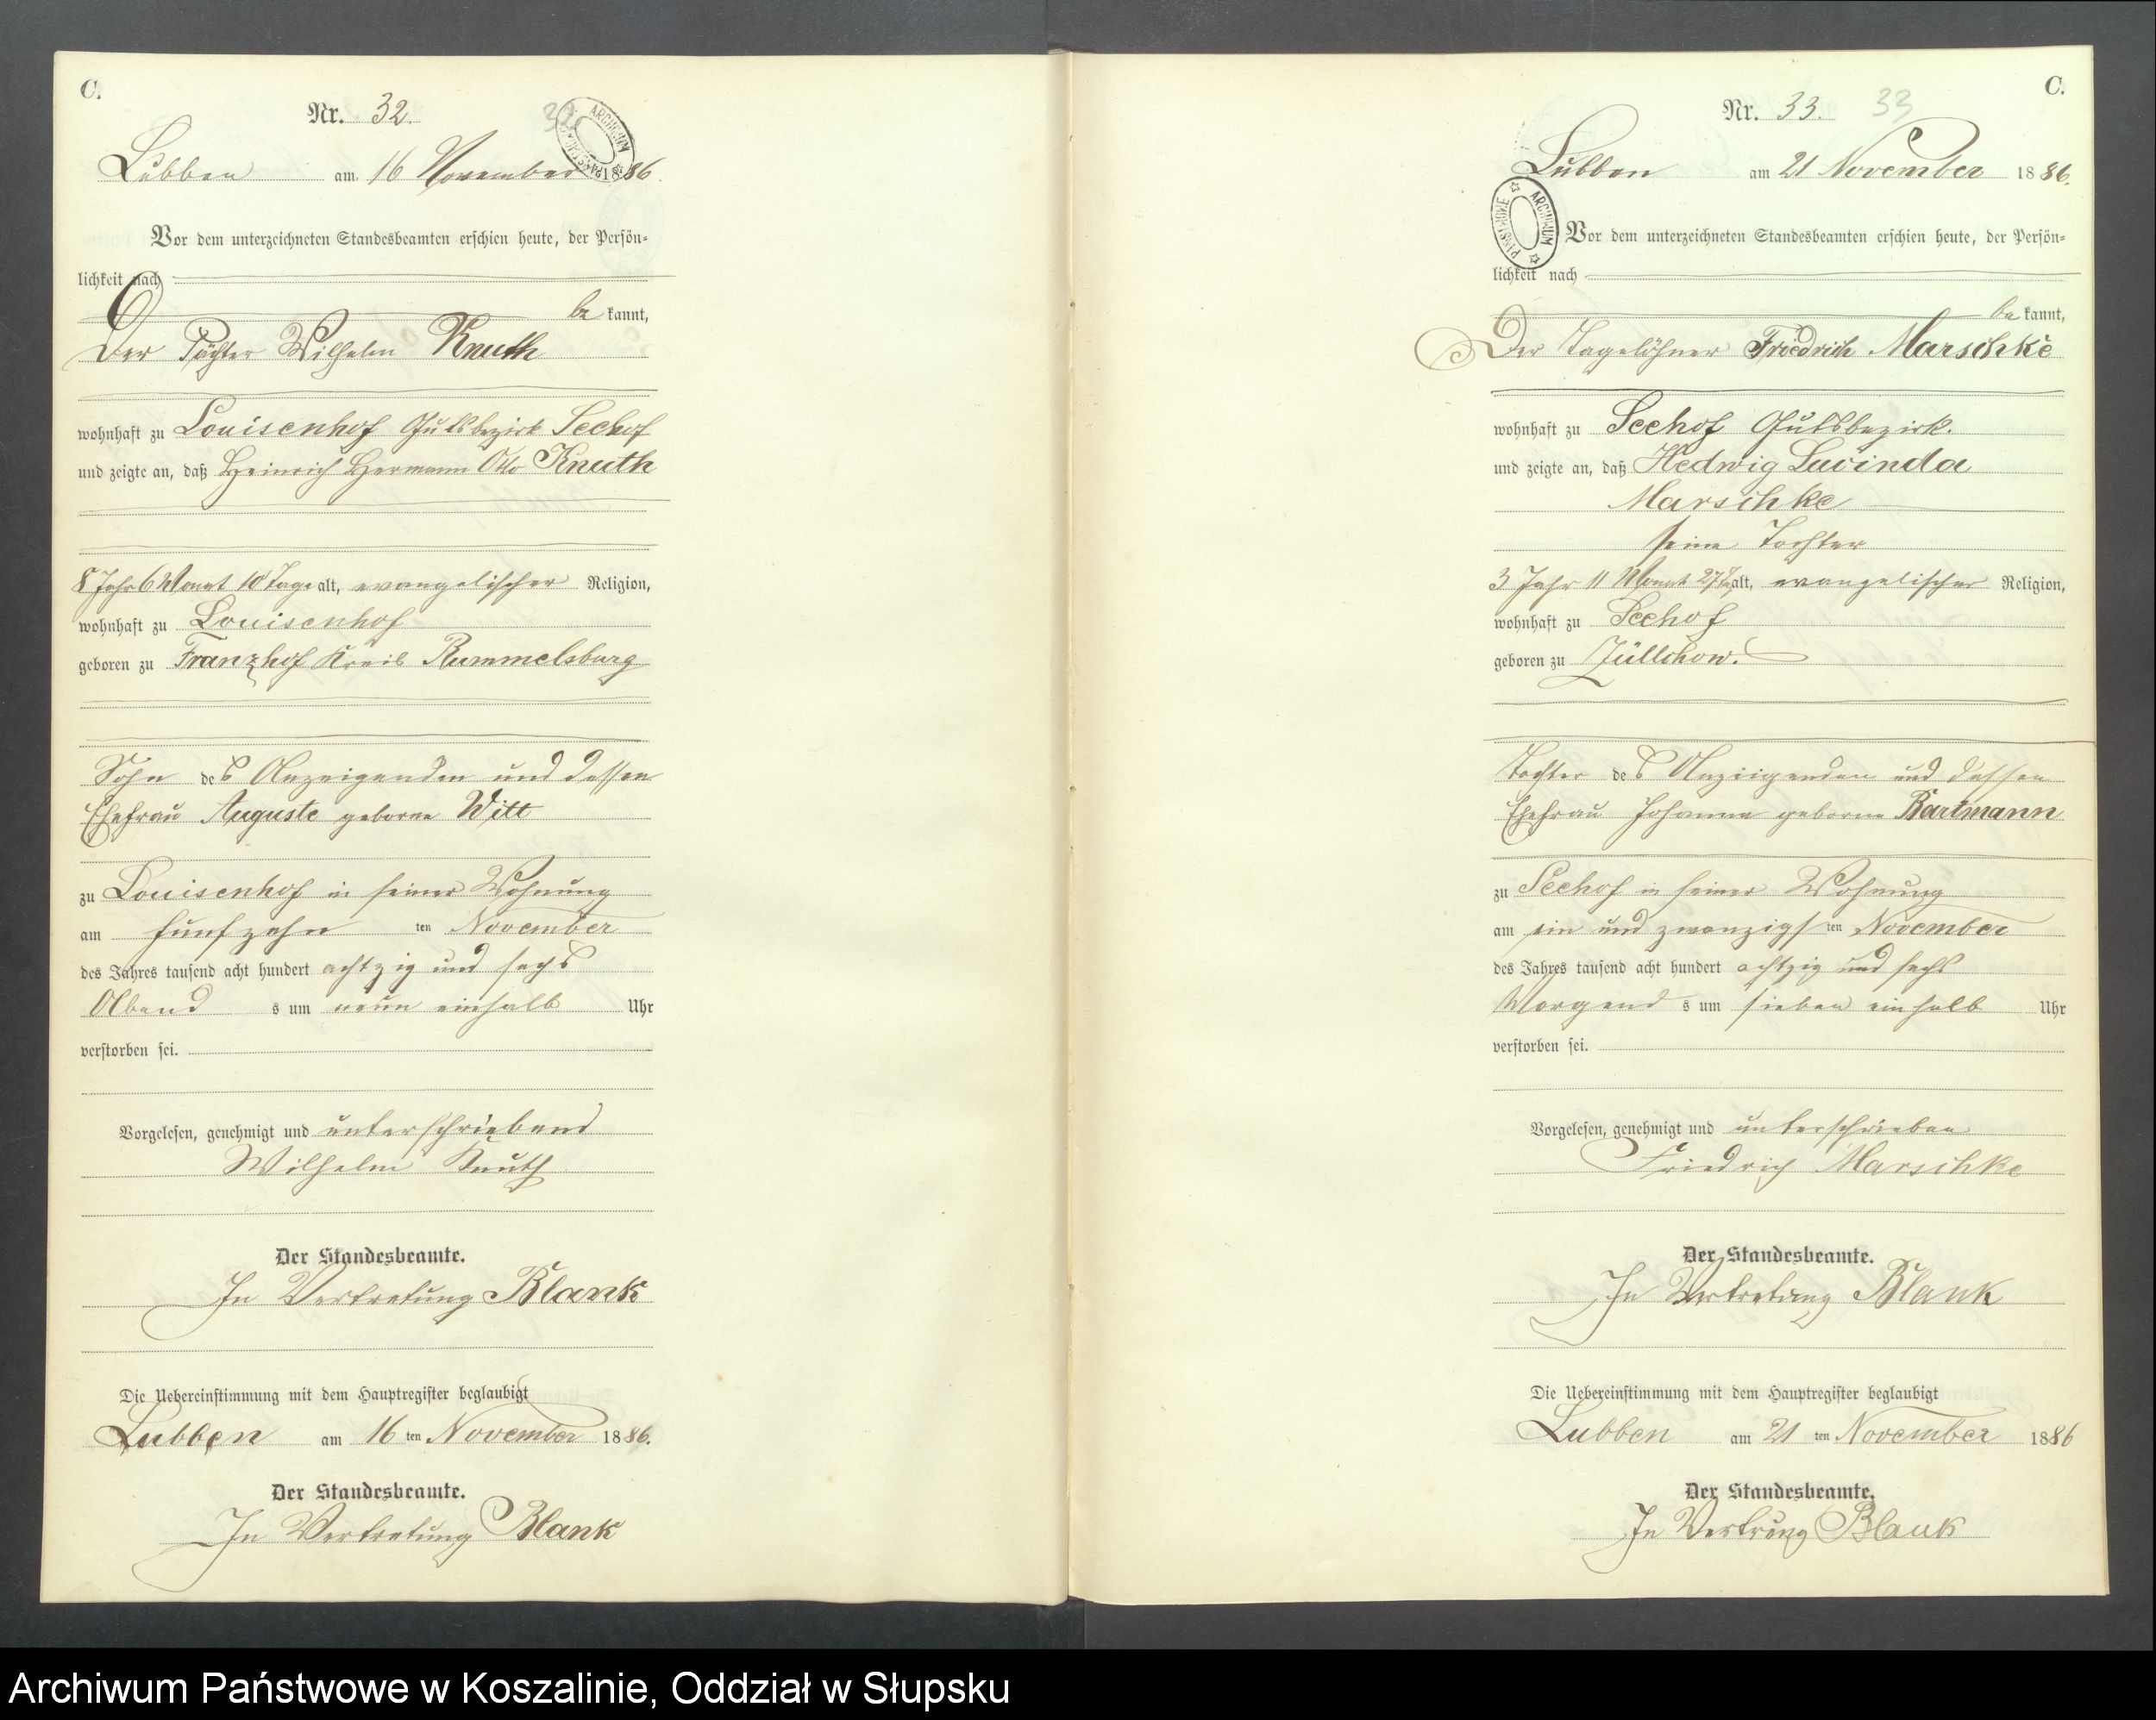 C.
Nr. 32.
32
ARCHIWUM PAŃSTWOWE
Lubben am 16 November 1886.
Vor dem unterzeichneten Standesbeamten erschien heute, der Persön-
lichkeit nach
be kannt,
Der Pächter Wilhelm Knuth
wohnhaft zu Louisenhof Gutsbezirk Seehof
und zeigte an, daß Heinrich Hermann Otto Knuth
8 Jahr 6 Monat 10 Tage alt, evangelischer Religion,
wohnhaft zu Louisenhof
geboren zu Franzhof Kreis Rummelsburg
Sohn des Anzeigenden und dessen
Ehefrau Auguste geborne Witt
zu Louisenhof in seiner Wohnung
am funfzehn ten November
des Jahres tausend acht hundert achtzig und sechs
Abend s um neun einhalb Uhr
verstorben sei.
Vorgelesen, genehmigt und unterschrieben
Wilhelm Knuth
Der Standesbeamte.
In Vertretung Blank
Die Uebereinstimmung mit dem Hauptregister beglaubigt
Lubben am 16 ten November 1886.
Der Standesbeamte.
In Vertretung Blank
C.
Nr. 33.
33
Lubben am 21 November 1886.
ARCHIWUM PAŃSTWOWE
Vor dem unterzeichneten Standesbeamten erschien heute, der Persön-
lichkeit nach
be kannt,
Der Tagelöhner Friedrich Marschke
wohnhaft zu Seehof Gutsbezirk.
und zeigte an, daß Hedwig Lucinda
Marschke
seine Tochter
3 Jahr 11 Monat 27 T alt, evangelischer Religion,
wohnhaft zu Seehof
geboren zu Züllchow.
Tochter des Anzeigenden und dessen
Ehefrau Johanna geborne Bartmann
zu Seehof in seiner Wohnung
am ein und zwanzigs ten November
des Jahres tausend acht hundert achtzig und sechs
Morgend s um sieben einhalb Uhr
verstorben sei.
Vorgelesen, genehmigt und unterschrieben
Friedrich Marschke
Der Standesbeamte.
In Vertretung Blank
Die Uebereinstimmung mit dem Hauptregister beglaubigt
Lubben am 21 ten November 1886
Der Standesbeamte.
In Vertrung Blank
Archiwum Państwowe w Koszalinie, Oddział w Słupsku